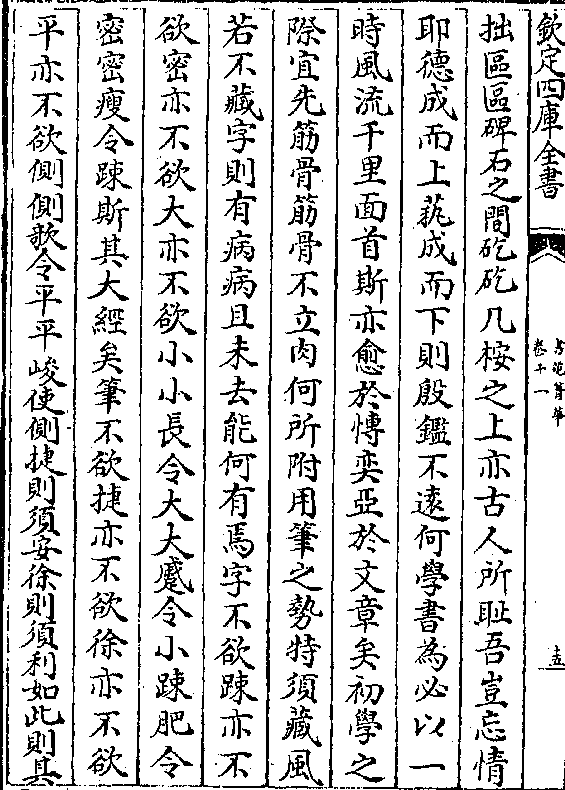 欽定四庫全書
書苑菁華
卷十一
十五
拙區區碑石之間矻矻几桉之上亦古人所耻吾豈忘情
耶德成而上藝成而下則殷鑑不逺何學書為必以一
時風流千里面首斯亦愈於慱奕亞於文章矣初學之
際宜先筋骨筋骨不立肉何所附用筆之勢特須藏鋒
若不藏字則有病病且未去能何有焉字不欲踈亦不
欲密亦不欲大亦不欲小小長令大大蹙令小踈肥令
密密瘦令踈斯其大經矣筆不欲捷亦不欲徐亦不欲
平亦不欲側側欹令平平峻使側捷則須安徐則須利如此則其